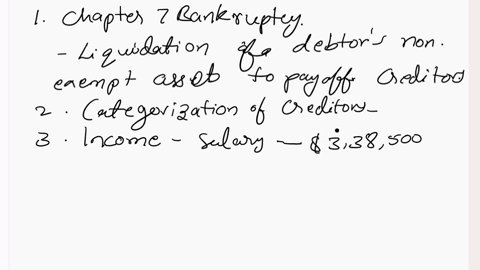 1. Chapter 7 Bankruptcy.
- Liquidation of a debtor's non.
exempt asset to payoff creditors
2. Categorization of creditors-
3. Income - Salary - $3,38,500